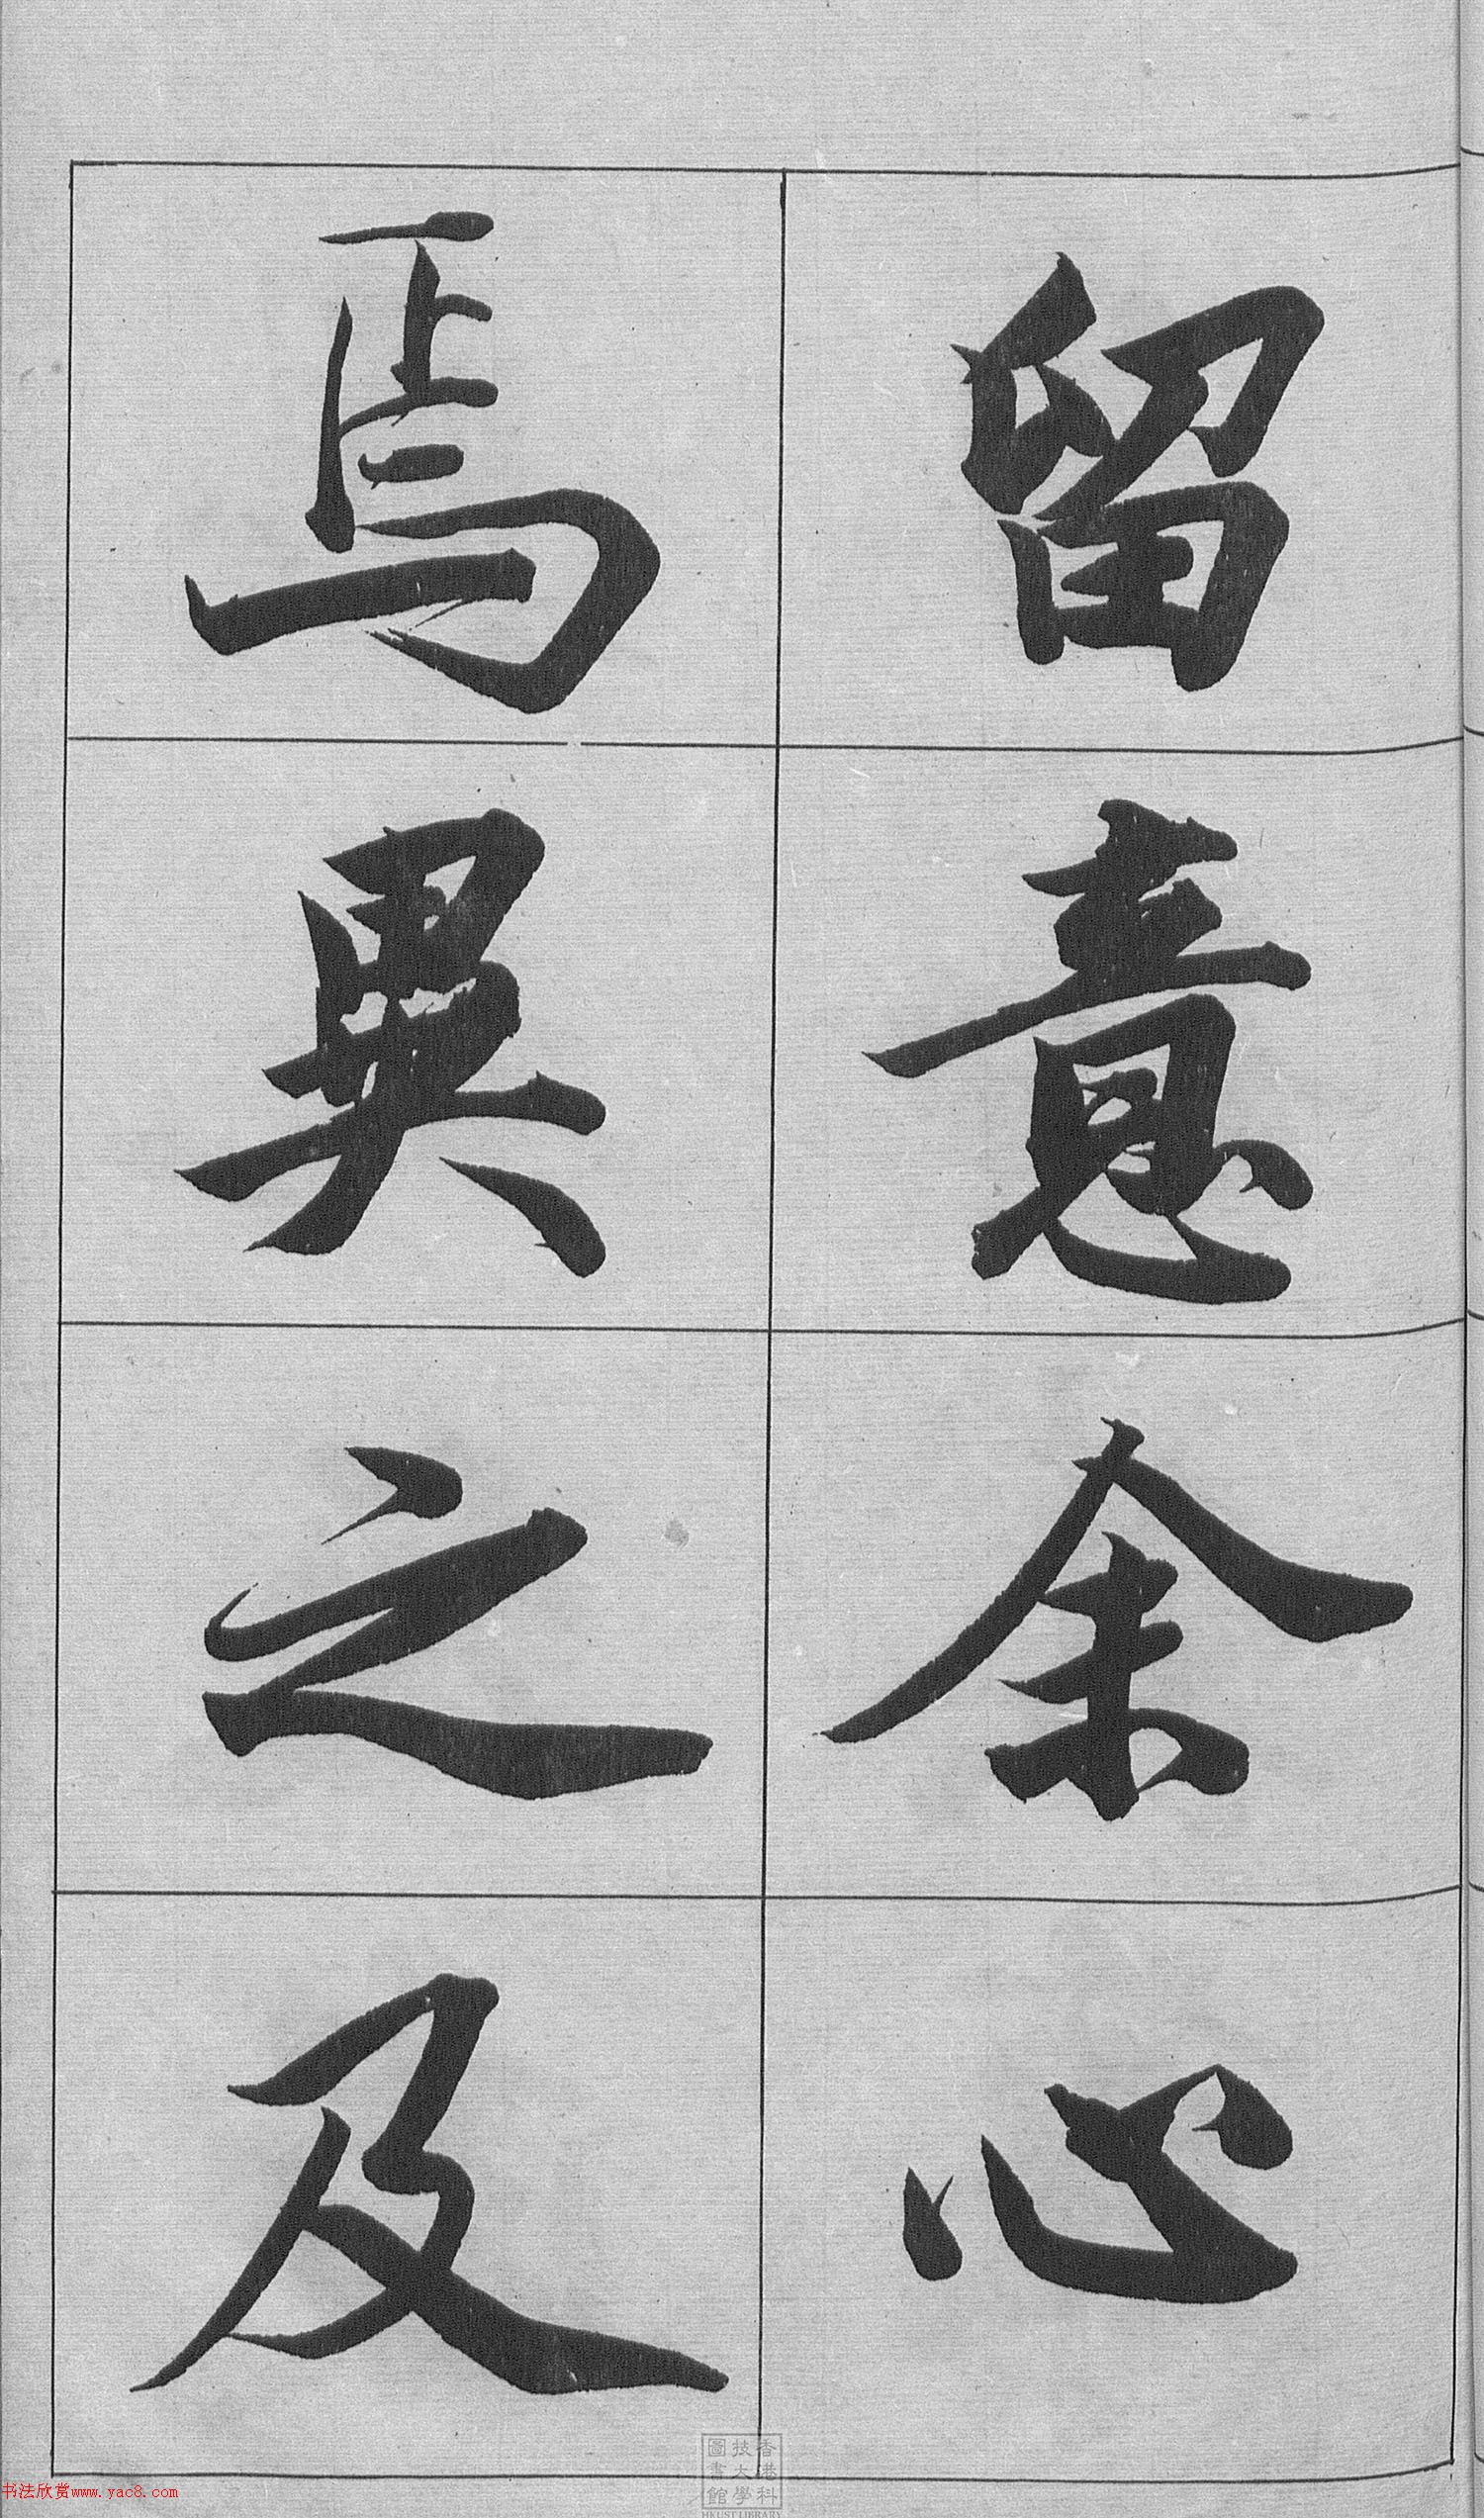 留意余心
焉異之及
香港科
技大學
圖書館
HKUST LIBRARY
书法欣赏www.yac8.com